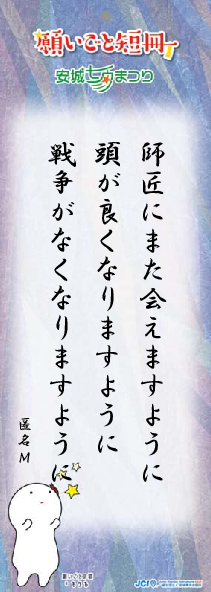 願いごと短冊
安城七夕まつり
師匠にまた会えますように
頭が良くなりますように
戦争がなくなりますように
匿名M